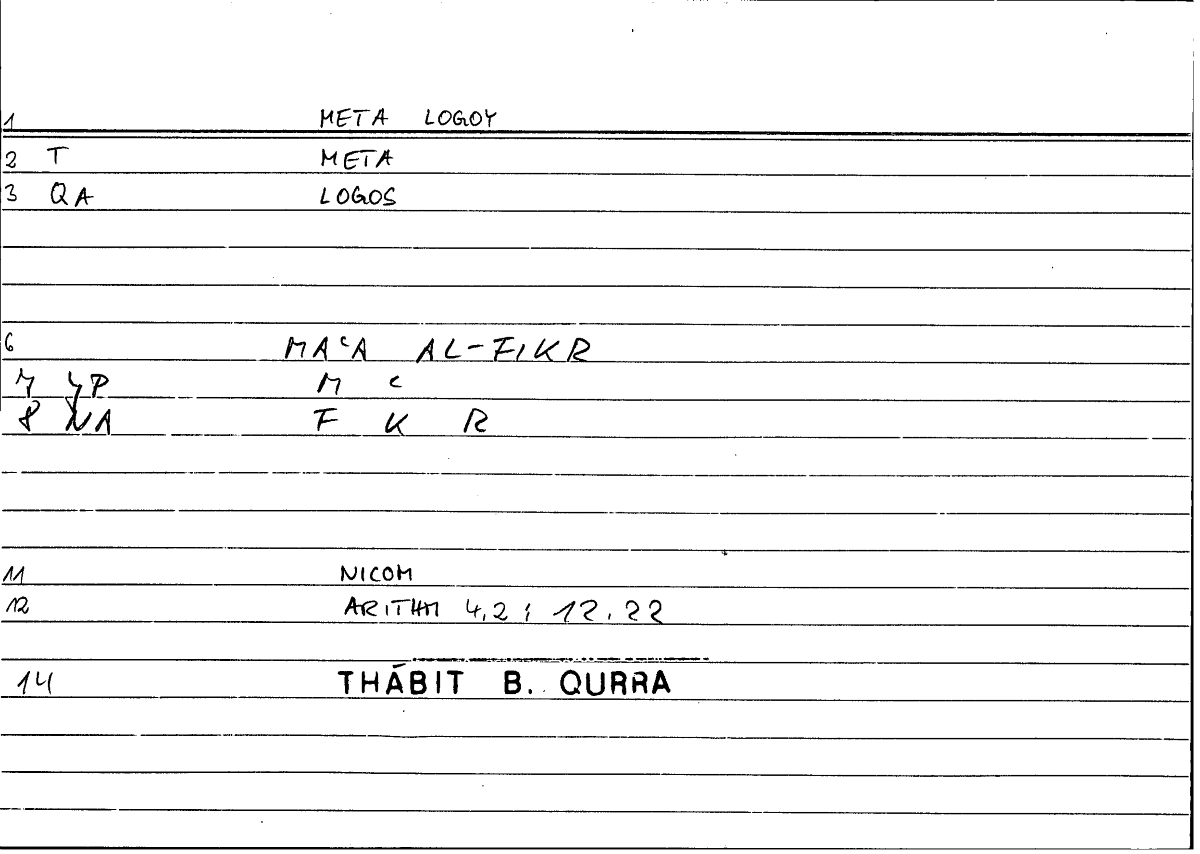 1 META LOGOY
2 T META
3 QA LOGOS
6 MAʿA AL-FIKR
7 YP M ʿ
8 NA F K R
11 NICOM
12 ARITHM 4,2; 12.22
14 THĀBIT B. QURRA